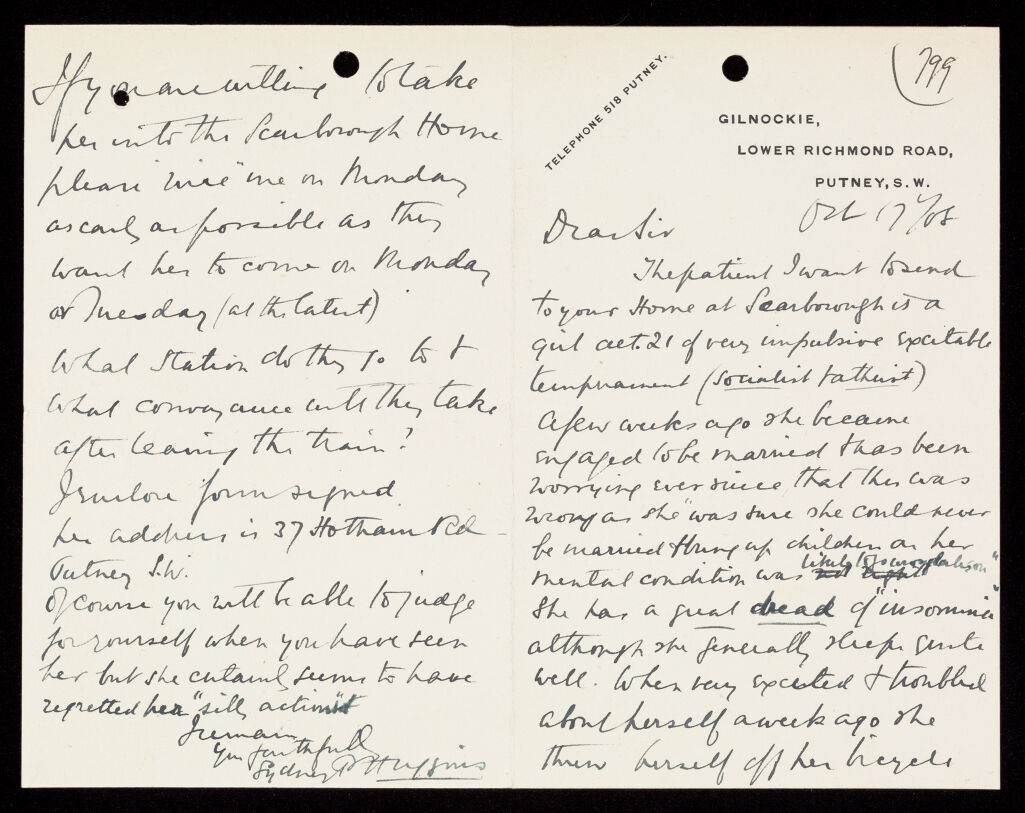 799
TELEPHONE 518 PUTNEY.
GILNOCKIE,
LOWER RICHMOND ROAD,
PUTNEY, S.W.
Oct 17th/08
Dear Sir
The patient I want to send
to your Home at Scarborough is a
girl aet. 21 of very impulsive excitable
temperament (Socialist & atheist)
A few weeks ago she became
engaged to be married & has been
worrying ever since, that this was
wrong as she "was sure she could never
be married & bring up children as her
mental condition was likely to
She has a great dread of "insomnia"
although she generally sleeps quite
well. When very excited & troubled
about herself a week ago she
threw herself off her bicycle
If you are willing to take
her into the Scarborough Home
please "wire" me on Monday
as early as possible as they
want her to come on Monday
or Tuesday (at the latest)
What Station do they go to &
what conveyance will they take
after leaving the train?
I enclose form signed
her address is 37 Hotham Rd
Putney S.W.
Of course you will be able to judge
for yourself when you have seen
her but she certainly seems to have
regretted her "silly action"
I remain
Yrs faithfully
Sydney P Huggins